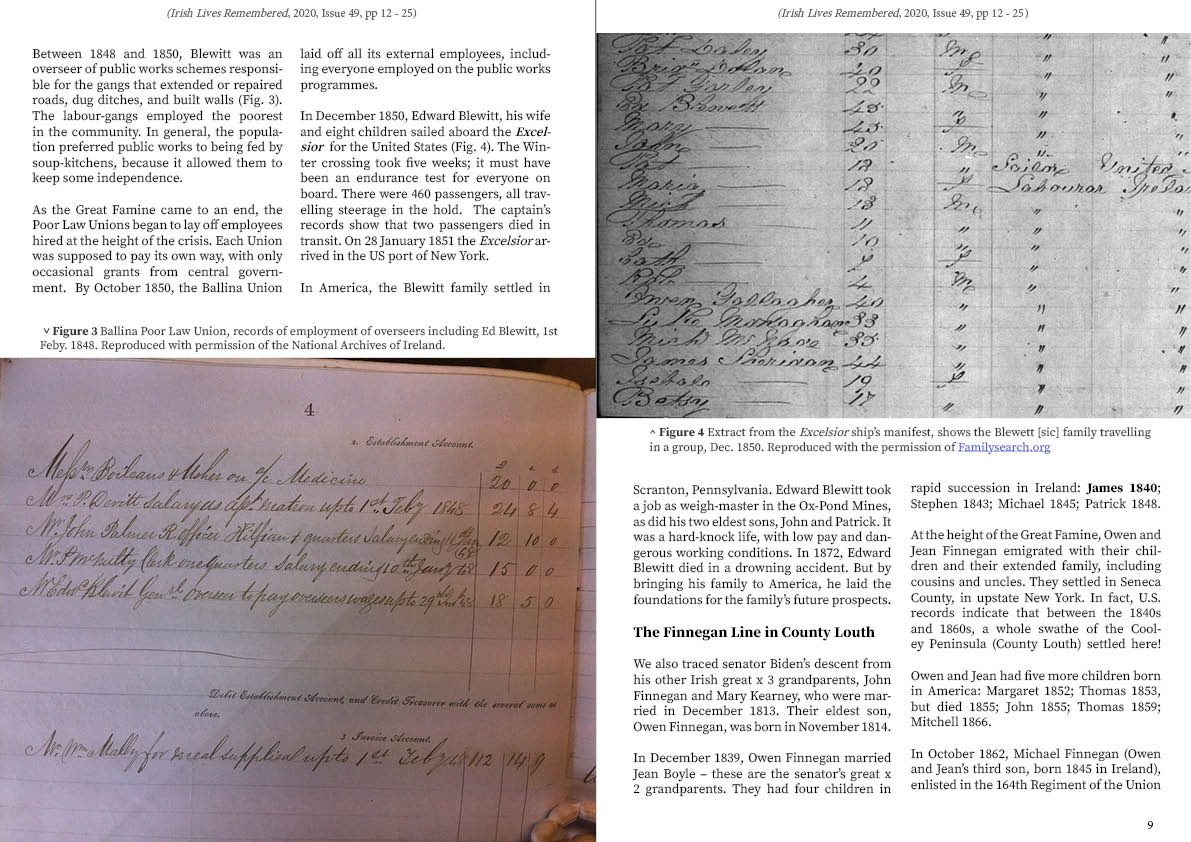 (Irish Lives Remembered, 2020, Issue 49, pp 12 - 25)
Between 1848 and 1850, Blewitt was an
overseer of public works schemes responsi-
ble for the gangs that extended or repaired
roads, dug ditches, and built walls (Fig. 3).
The labour-gangs employed the poorest
in the community. In general, the popula-
tion preferred public works to being fed by
soup-kitchens, because it allowed them to
keep some independence.
As the Great Famine came to an end, the
Poor Law Unions began to lay off employees
hired at the height of the crisis. Each Union
was supposed to pay its own way, with only
occasional grants from central govern-
ment. By October 1850, the Ballina Union
laid off all its external employees, includ-
ing everyone employed on the public works
programmes.
In December 1850, Edward Blewitt, his wife
and eight children sailed aboard the Excel-
sior for the United States (Fig. 4). The Win-
ter crossing took five weeks; it must have
been an endurance test for everyone on
board. There were 460 passengers, all trav-
elling steerage in the hold. The captain's
records show that two passengers died in
transit. On 28 January 1851 the Excelsior ar-
rived in the US port of New York.
In America, the Blewitt family settled in
˅ Figure 3 Ballina Poor Law Union, records of employment of overseers including Ed Blewitt, 1st
Feby. 1848. Reproduced with permission of the National Archives of Ireland.
4
2. Establishment Account.
£ s d
Medicine 20 0 0
Mr. P. Devitt Salary as apt. matron upto 1st Feby 1848 24 8 4
Mr. John Palmer R. Officer quarters Salary ending 12 10 0
Clerk one quarters Salary ending 15 0 0
Overseer to pay overseers wages upto 29th 18 5 0
Debit Establishment Account, and Credit Treasurer with the several sums as
above.
3 Invoice Account.
Mr. Wm Mally for meal supplied upto 1st Feby 48 112 14 9
(Irish Lives Remembered, 2020, Issue 49, pp 12 - 25)
Pat Daley 30 M
40
22 M
Ed Blewett 45
Mary 45
John 20 M
Pat 12 Sailor United
Maria 12 Labourer
Mich 13 M
Thomas 11
10
Cath
4 M
Owen Gallagher 40
Monaghan 33
35
James Sheridan 44
19
Betsy 17
˄ Figure 4 Extract from the Excelsior ship's manifest, shows the Blewett [sic] family travelling
in a group, Dec. 1850. Reproduced with the permission of Familysearch.org
Scranton, Pennsylvania. Edward Blewitt took
a job as weigh-master in the Ox-Pond Mines,
as did his two eldest sons, John and Patrick. It
was a hard-knock life, with low pay and dan-
gerous working conditions. In 1872, Edward
Blewitt died in a drowning accident. But by
bringing his family to America, he laid the
foundations for the family's future prospects.
The Finnegan Line in County Louth
We also traced senator Biden's descent from
his other Irish great x 3 grandparents, John
Finnegan and Mary Kearney, who were mar-
ried in December 1813. Their eldest son,
Owen Finnegan, was born in November 1814.
In December 1839, Owen Finnegan married
Jean Boyle – these are the senator's great x
2 grandparents. They had four children in
rapid succession in Ireland: James 1840;
Stephen 1843; Michael 1845; Patrick 1848.
At the height of the Great Famine, Owen and
Jean Finnegan emigrated with their chil-
dren and their extended family, including
cousins and uncles. They settled in Seneca
County, in upstate New York. In fact, U.S.
records indicate that between the 1840s
and 1860s, a whole swathe of the Cool-
ey Peninsula (County Louth) settled here!
Owen and Jean had five more children born
in America: Margaret 1852; Thomas 1853,
but died 1855; John 1855; Thomas 1859;
Mitchell 1866.
In October 1862, Michael Finnegan (Owen
and Jean's third son, born 1845 in Ireland),
enlisted in the 164th Regiment of the Union
9